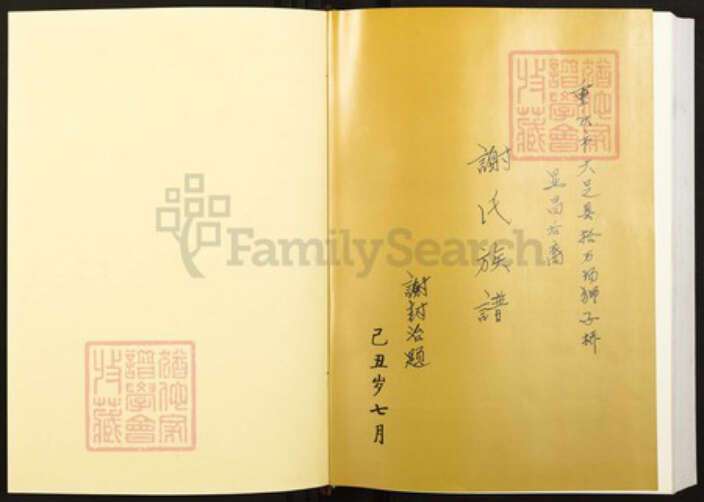 重庆市大足县拾万场狮子桥
显昌公裔
謝氏族譜
謝封治題
己丑岁七月
猶他家
譜學會
收藏
猶他家
譜學會
收藏
FamilySearch